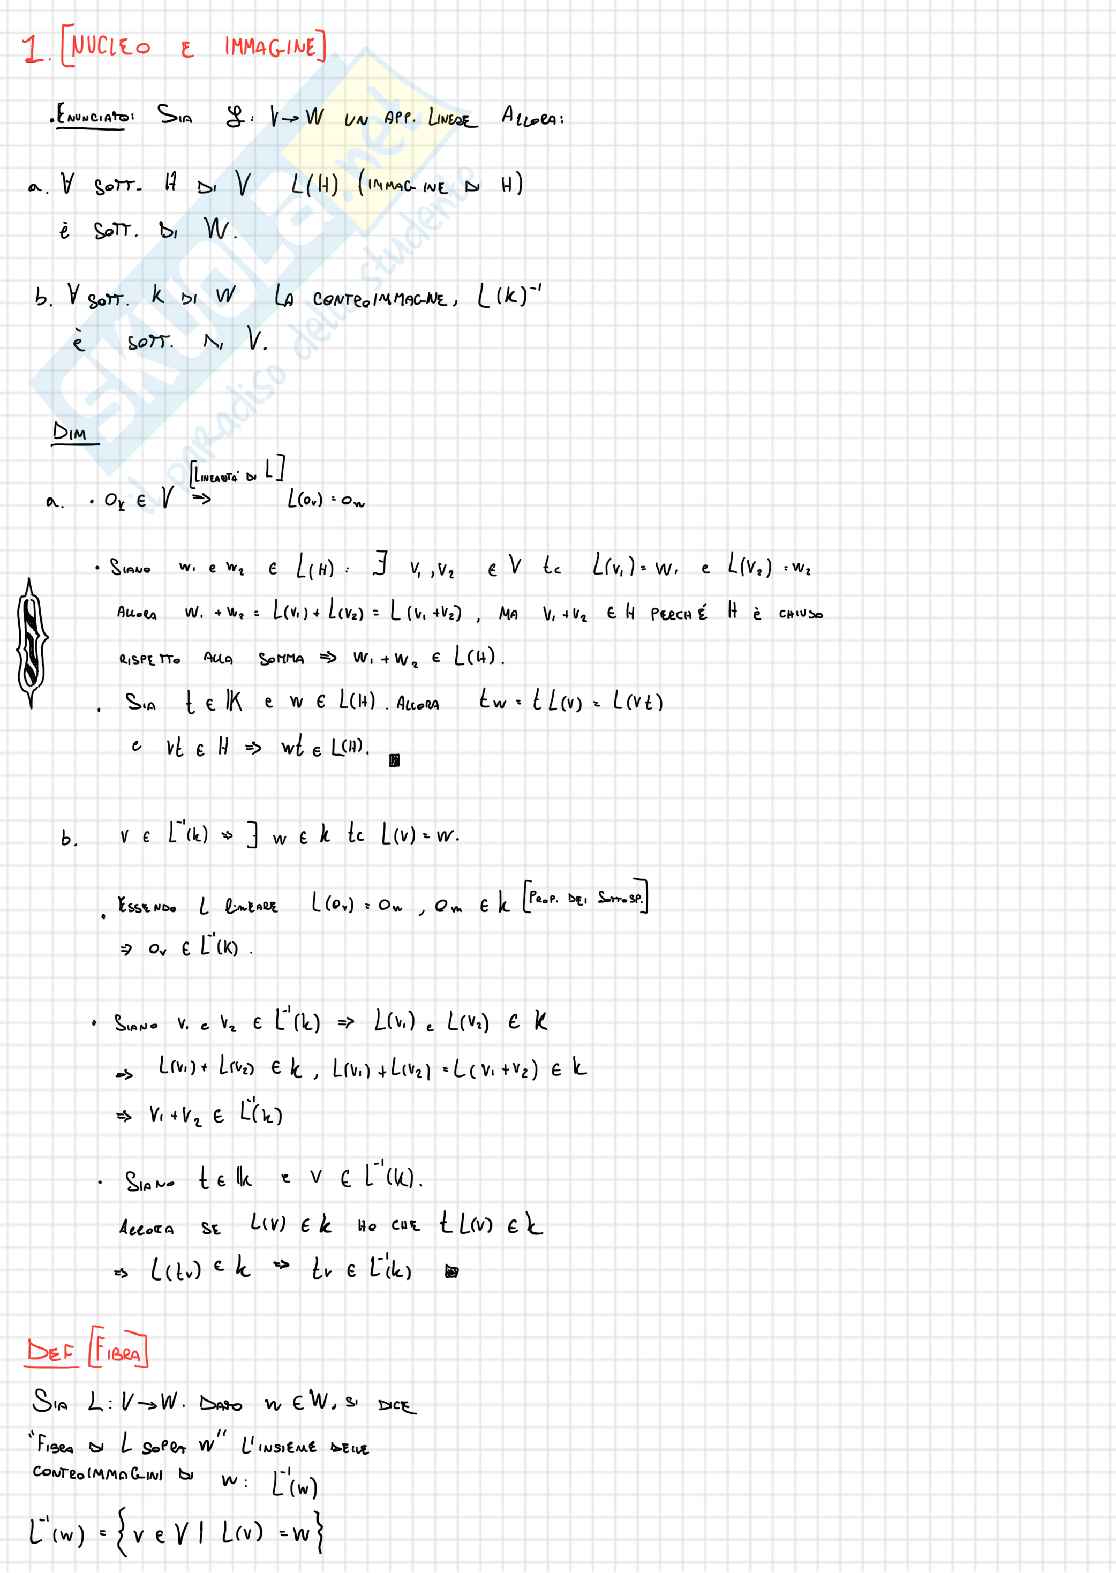 1. [NUCLEO E IMMAGINE]
. ENUNCIATO: SIA L: V → W UN APP. LINEARE ALLORA:
a. ∀ SOTT. H DI V L(H) (IMMAGINE DI H)
è SOTT. DI W.
b. ∀ SOTT. K DI W LA CONTROIMMAGINE, L(K)⁻¹
è SOTT. DI V.
DIM
[LINEARITÀ DI L]
a. · 0ᵥ ∈ V ⇒ L(0ᵥ) = 0w
· SIANO w₁ e w₂ ∈ L(H) : ∃ v₁, v₂ ∈ V tc L(v₁) = w₁ e L(v₂) = w₂
ALLORA w₁ + w₂ = L(v₁) + L(v₂) = L(v₁ + v₂), MA v₁ + v₂ ∈ H PERCHÉ H è CHIUSO
RISPETTO ALLA SOMMA ⇒ w₁ + w₂ ∈ L(H).
. SIA t ∈ 𝕂 e w ∈ L(H). ALLORA tw = t L(v) = L(vt)
e vt ∈ H ⇒ wt ∈ L(H). ■
b. v ∈ L⁻¹(k) ⇒ ∃ w ∈ k tc L(v) = w.
. ESSENDO L LINEARE L(0ᵥ) = 0w, 0w ∈ k [PROP. DEI SOTTOSP.]
⇒ 0ᵥ ∈ L⁻¹(k).
· SIANO v₁ e v₂ ∈ L⁻¹(k) ⇒ L(v₁) e L(v₂) ∈ K
⇒ L(v₁) + L(v₂) ∈ k, L(v₁) + L(v₂) = L(v₁ + v₂) ∈ k
⇒ v₁ + v₂ ∈ L⁻¹(k)
· SIANO t ∈ 𝕂 e v ∈ L⁻¹(k).
ALLORA SE L(v) ∈ k HO CHE t L(v) ∈ k
⇒ L(tv) ∈ k ⇒ tv ∈ L⁻¹(k) ■
DEF [FIBRA]
SIA L: V → W. DATO w ∈ W, SI DICE
"FIBRA DI L SOPRA W" L'INSIEME DELLE
CONTROIMMAGINI DI w: L⁻¹(w)
L⁻¹(w) = {v ∈ V | L(v) = w}
SKUOLA.net
il paradiso dello studente